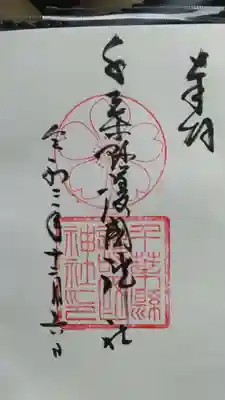 奉拝
千葉縣護國神社
千葉縣護國神社印
令和三年三十月六日